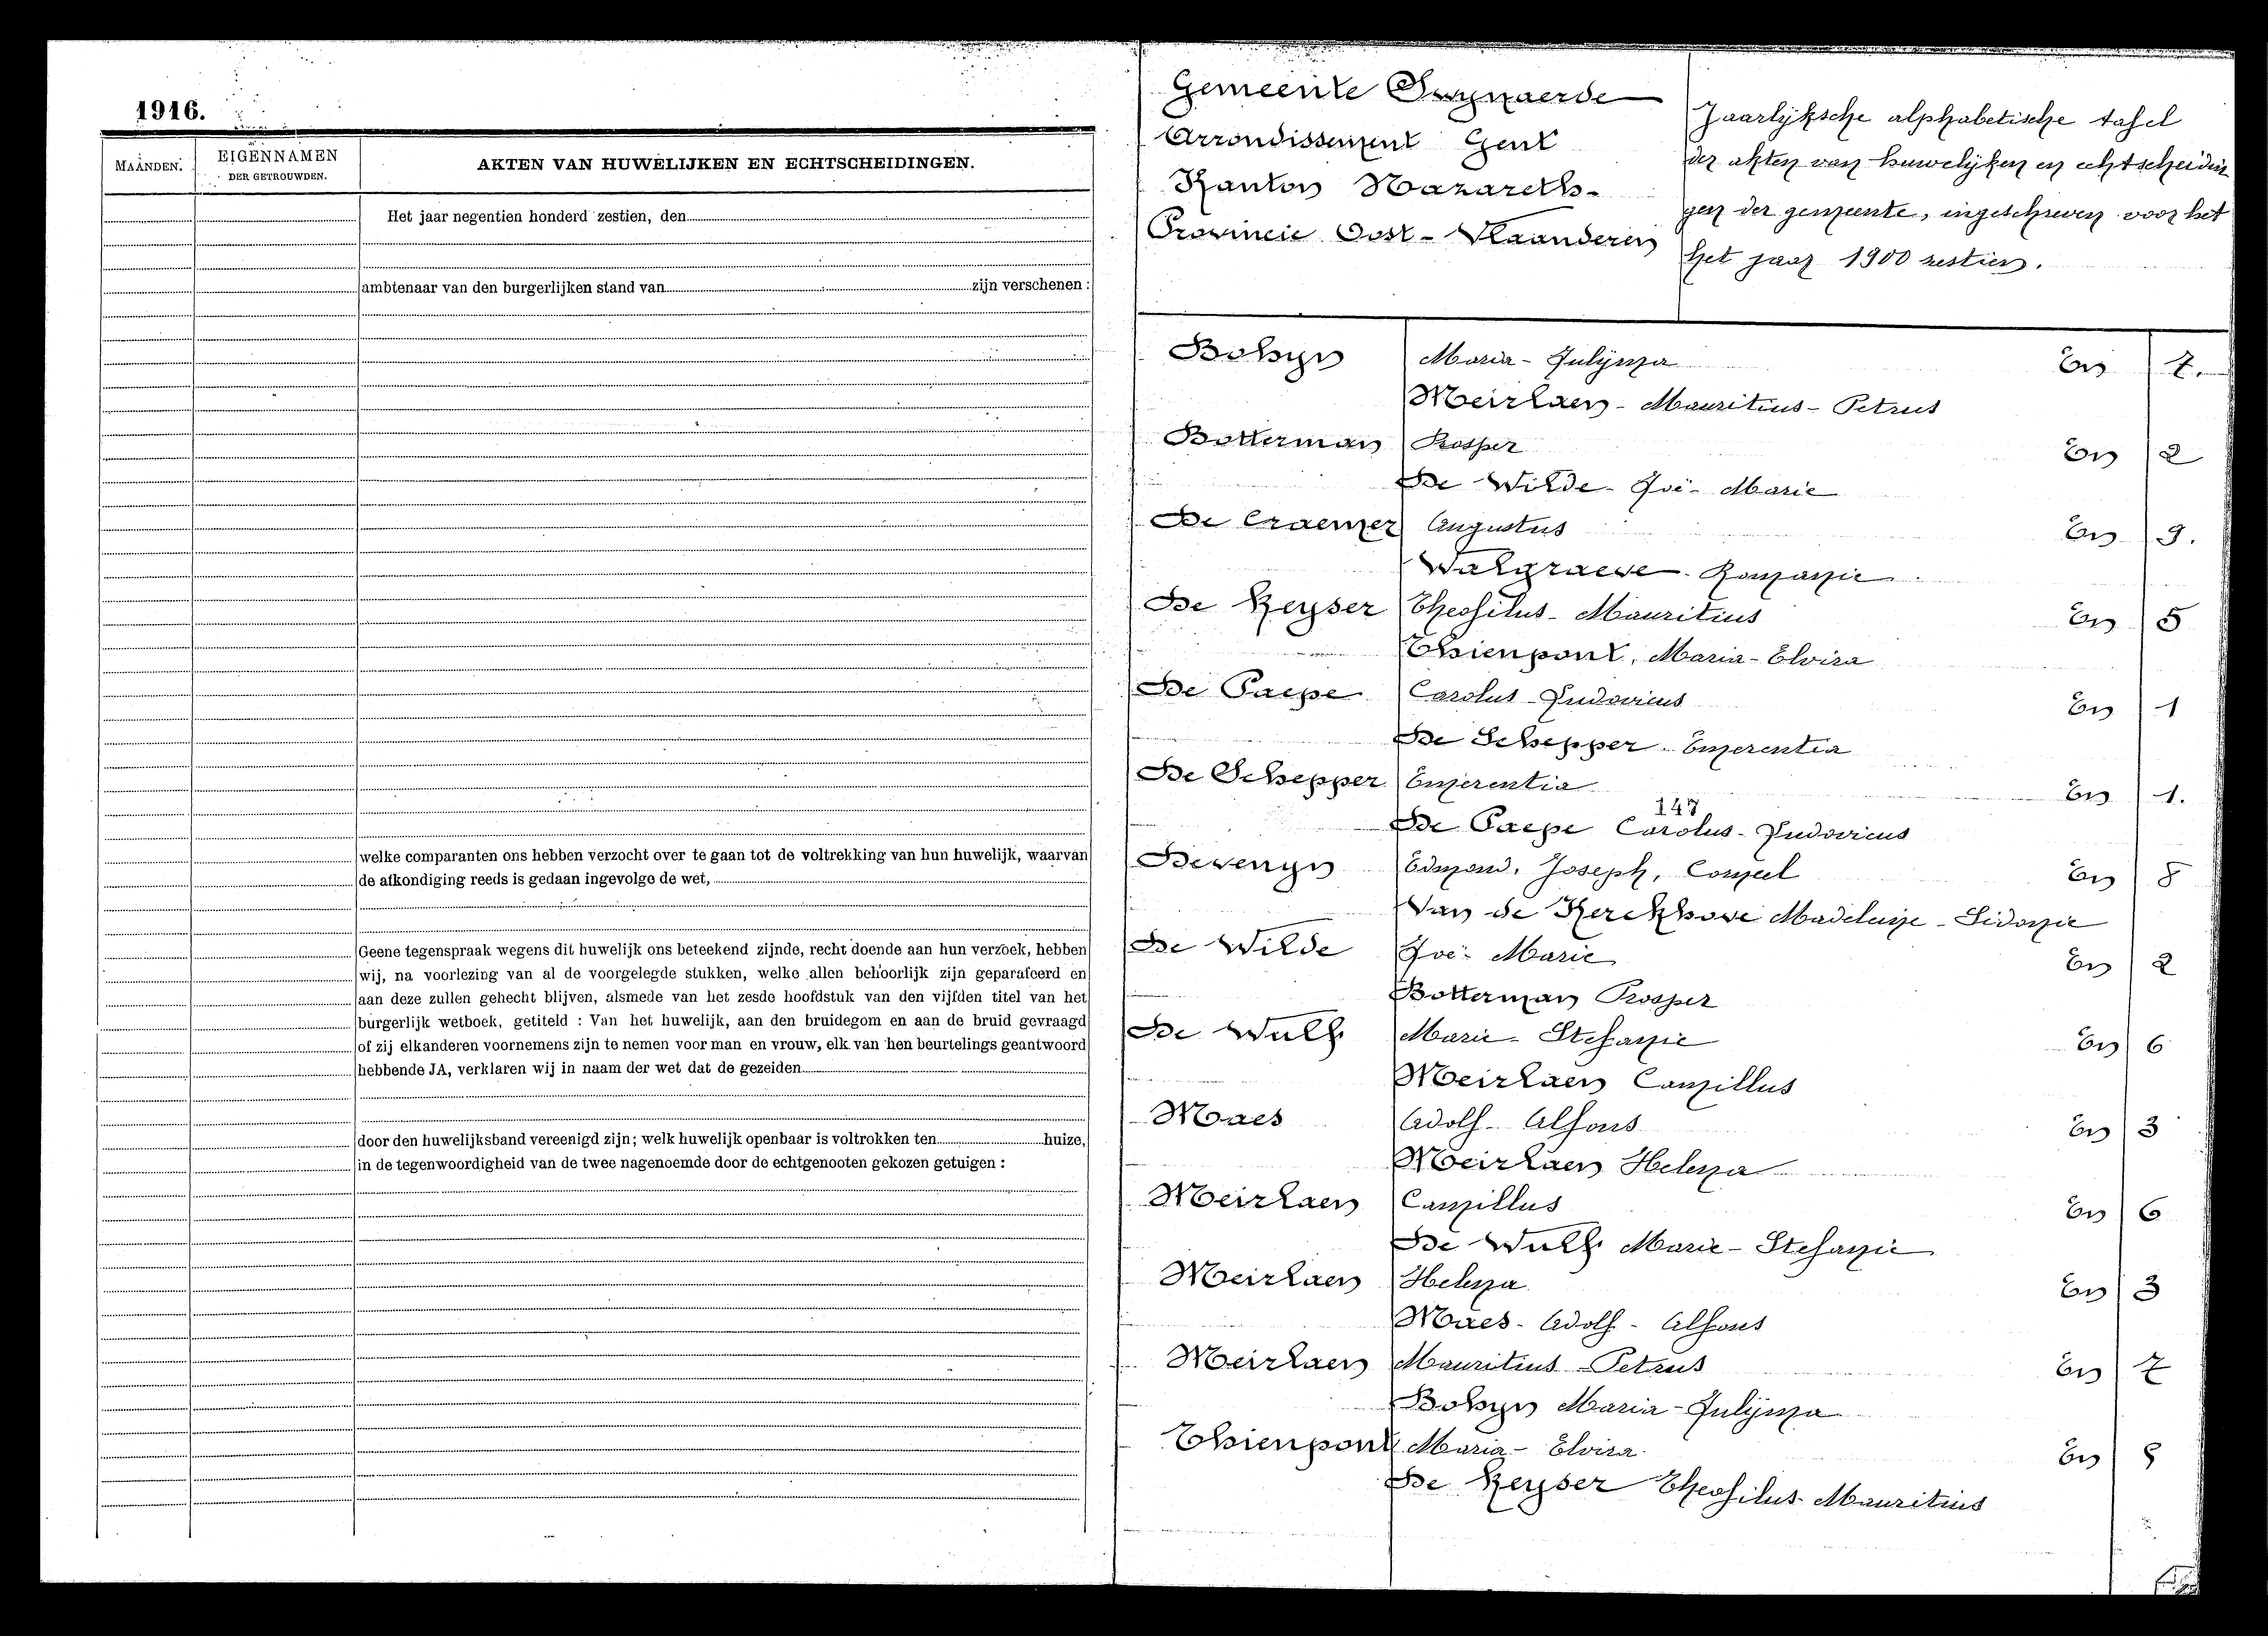 1916.
MAANDEN.
EIGENNAMEN
DER GETROUWDEN.
AKTEN VAN HUWELIJKEN EN ECHTSCHEIDINGEN.
Het jaar negentien honderd zestien, den
ambtenaar van den burgerlijken stand van zijn verschenen :
welke comparanten ons hebben verzocht over te gaan tot de voltrekking van hun huwelijk, waarvan
de afkondiging reeds is gedaan ingevolge de wet,
Geene tegenspraak wegens dit huwelijk ons beteekend zijnde, recht doende aan hun verzoek, hebben
wij, na voorlezing van al de voorgelegde stukken, welke allen behoorlijk zijn geparafeerd en
aan deze zullen gehecht blijven, alsmede van het zesde hoofdstuk van den vijfden titel van het
burgerlijk wetboek, getiteld : Van het huwelijk, aan den bruidegom en aan de bruid gevraagd
of zij elkanderen voornemens zijn te nemen voor man en vrouw, elk van hen beurtelings geantwoord
hebbende JA, verklaren wij in naam der wet dat de gezeiden
door den huwelijksband vereenigd zijn; welk huwelijk openbaar is voltrokken ten huize,
in de tegenwoordigheid van de twee nagenoemde door de echtgenooten gekozen getuigen :
Gemeente Swynaerde
Arrondissement Gent
Kanton Nazareth-
Provincie Oost-Vlaanderen
Jaarlijksche alphabetische tafel
der akten van huwelijken en echtscheidin
gen der gemeente, ingeschreven voor het
het jaar 1900 zestien.
Bohyn Maria-Julijma En 7.
Meirlaen-Mauritius-Petrus
Botterman Prosper En 2
De Wilde-Zoë-Marie
De Craemer Augustus En 9.
Walgraeve Romanie
De Keyser Theofilus-Mauritius En 5
Thienpont, Maria-Elvira
De Paepe Carolus-Ludovicus En 1
De Schepper Emerentia
De Schepper Emerentia En 1.
147
De Paepe Carolus-Ludovicus
Devenyn Edmond, Joseph, Corneel En 8
Van de Kerckhove Madeleine-Sidonie
De Wilde Zoë-Marie En 2
Botterman Prosper
De Wulf Marie-Stefanie En 6
Meirlaen Camillus
Maes Adolf-Alfons En 3
Meirlaen Helena
Meirlaen Camillus En 6
De Wulf Marie-Stefanie
Meirlaen Helena En 3
Maes-Adolf-Alfons
Meirlaen Mauritius-Petrus En 7
Bohyn Maria-Julijma
Thienpont Maria-Elvira En 5
De Keyser Theofilus-Mauritius